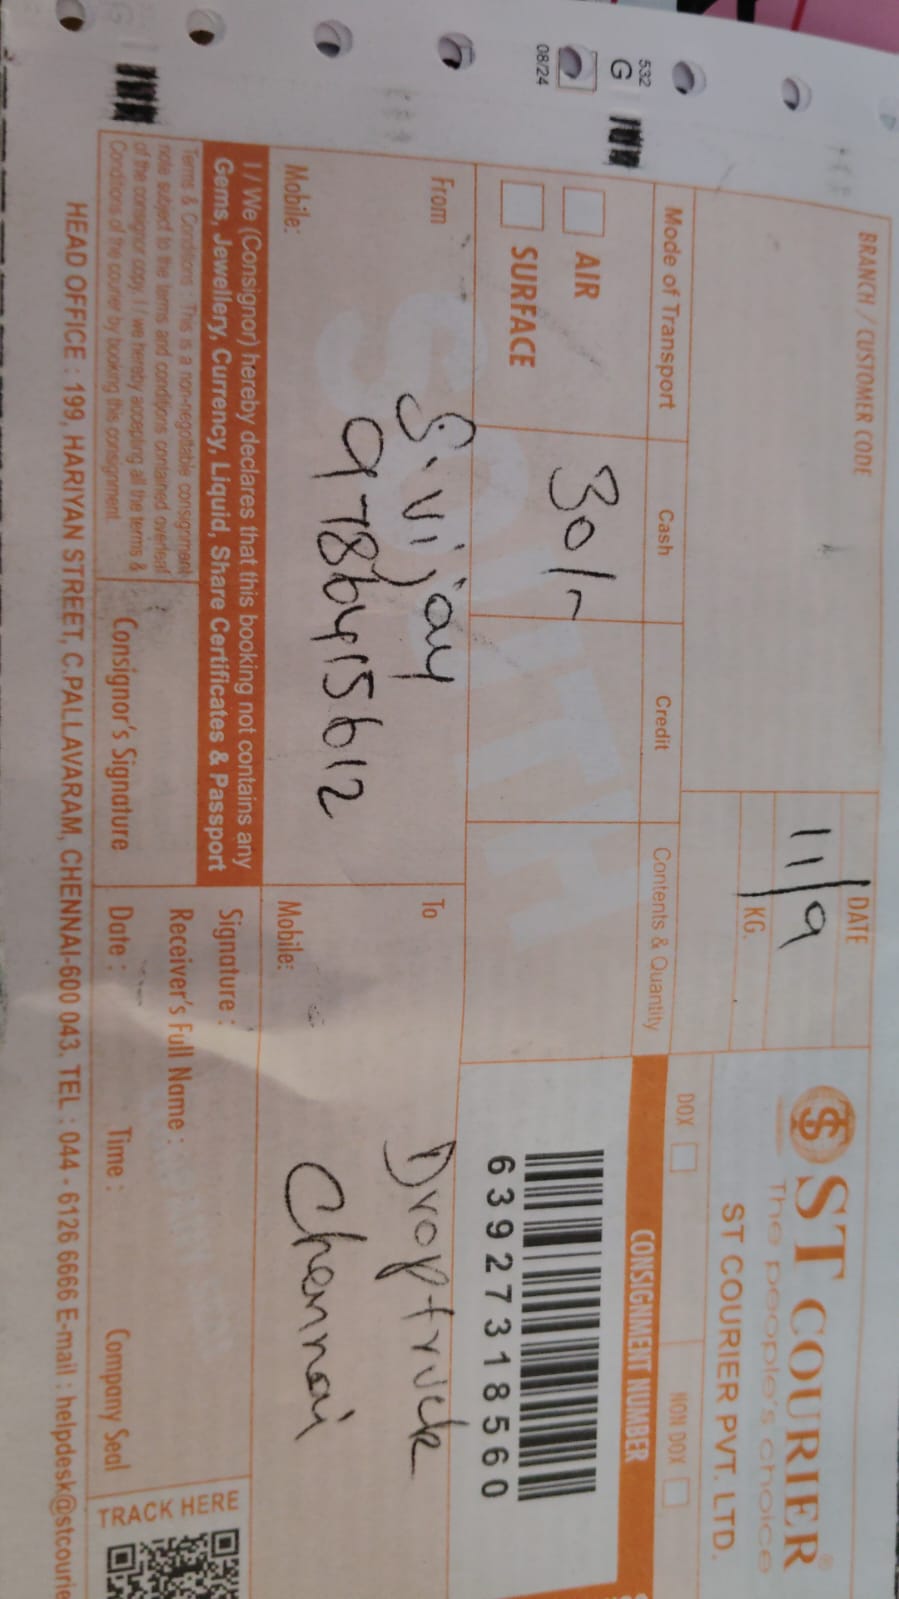 BRANCH / CUSTOMER CODE
DATE
11/9
KG.
ST COURIER
The people's choice
ST COURIER PVT. LTD.
DOX
NON DOX
Mode of Transport
Cash
Credit
Contents & Quantity
CONSIGNMENT NUMBER
532
G
08/24
AIR
SURFACE
30/-
SOUTH
63927318560
From
S. vijay
9786415612
Mobile:
To
Droptruck
Chennai
Mobile:
I / We (Consignor) hereby declares that this booking not contains any
Gems, Jewellery, Currency, Liquid, Share Certificates & Passport
Terms & Conditions : This is a non-negotiable consignment
note subject to the terms and conditions contained overleaf
of the consignor copy. I / we hereby accepting all the terms &
Conditions of the courier by booking this consignment.
Consignor's Signature
Signature :
Receiver's Full Name :
Date :
Time :
Company Seal
TRACK HERE
HEAD OFFICE : 199, HARIYAN STREET, C.PALLAVARAM, CHENNAI-600 043. TEL : 044 - 6126 6666 E-mail : helpdesk@stcourie